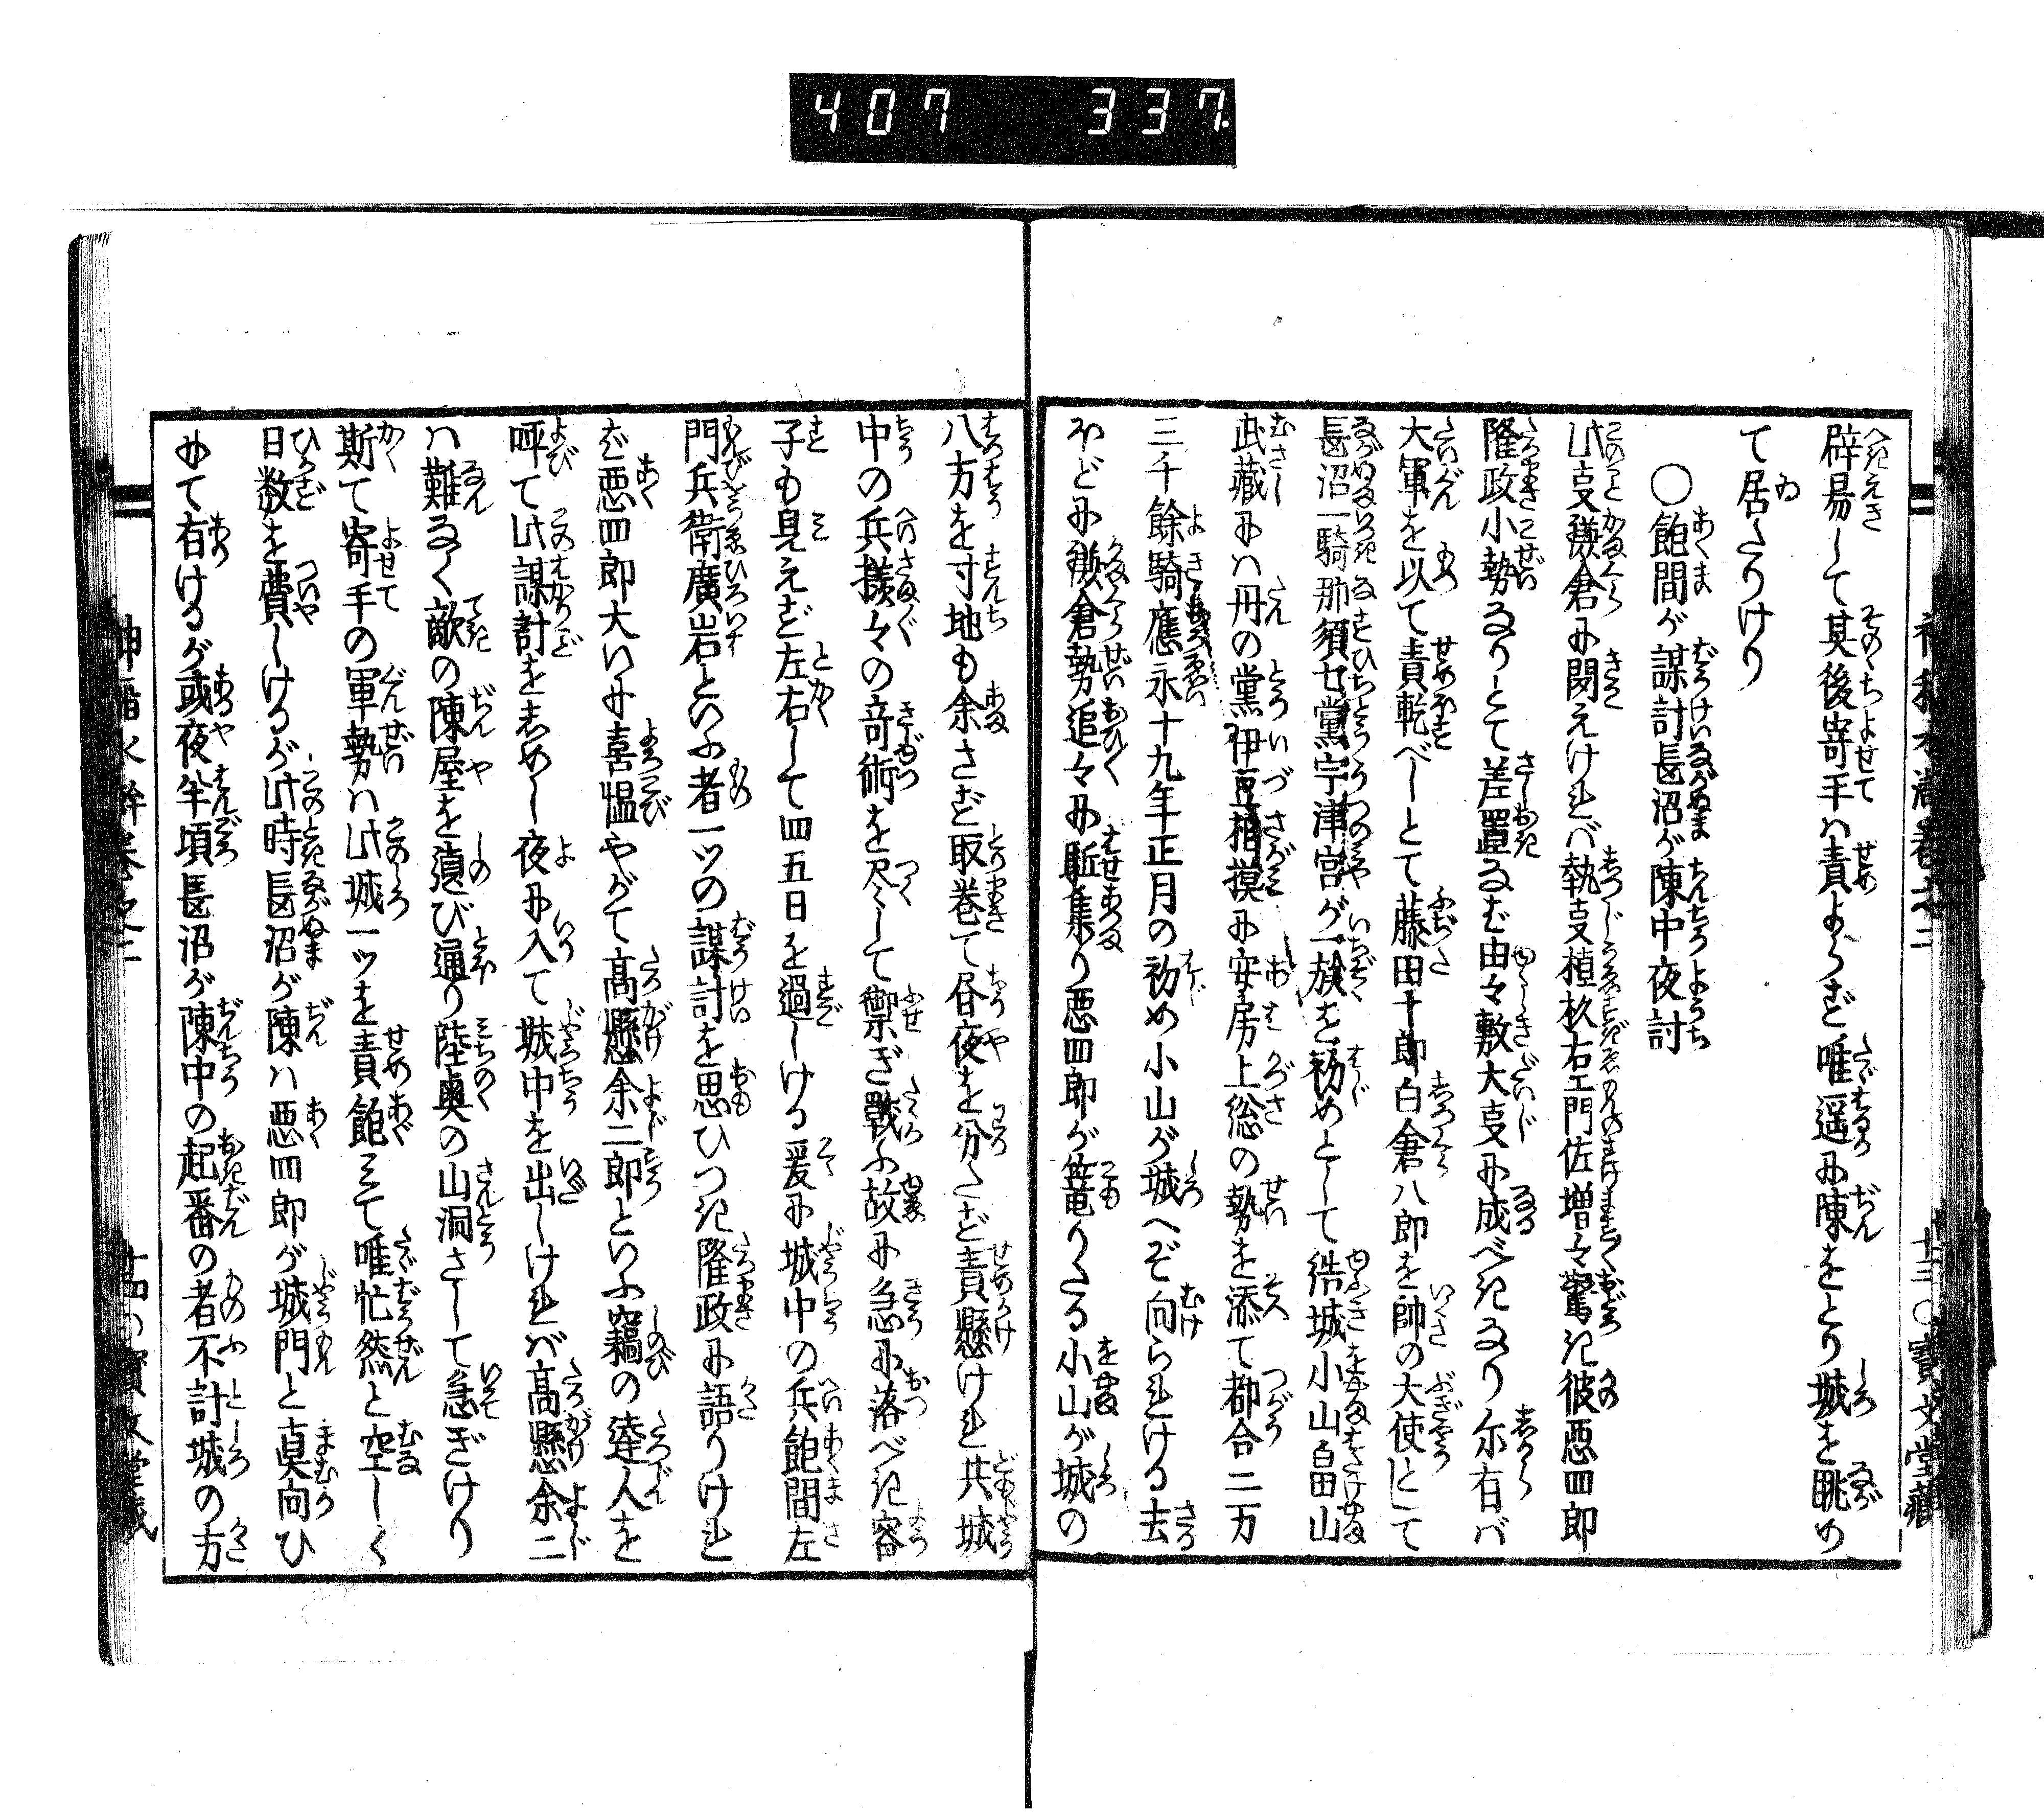 407 337.
辟易して其後寄手ハ責よらず唯遥に陳をとり城を眺め
て居たりけり
〇飽間が謀計長沼が陳中夜討
此支鎌倉に聞えけれバ執支植杦右エ門佐増々驚き彼悪四郎
隆政小勢なりとて差置なば由々敷大支に成べきなり尓右バ
大軍を以て責乾べしとて藤田十郎白倉八郎を帥の大使として
長沼一騎那須七黨宇津宮が一族を初めとして結城小山畠山
武藏にハ丹の黨伊豆相摸に安房上総の勢を添て都合二万
三千餘騎應永十九年正月の初め小山が城へぞ向られける去
ほどに鎌倉勢追々に駈集り悪四郎が篭りたる小山が城の
八方を寸地も余さず取巻て昼夜を分たず責懸けれ共城
中の兵様々の竒術を尽して禦ぎ戰ふ故に急に落べき容
子も見えず左右して四五日を過しける爰に城中の兵飽間左
門兵衛廣岩といふ者一ッの謀計を思ひつき隆政に語りけれ
ば悪四郎大いに喜慍やがて髙懸余二郎といふ竊の達人を
呼て此謀計をしめし夜に入て城中を出しけれバ髙懸余二
ハ難なく敵の陳屋を
び通り陸奥の山洞さして急ぎけり
斯て寄手の軍勢ハ此城一ッを責飽ミて唯忙然と空しく
日数を費しけるが此時長沼が陳ハ悪四郎が城門と真向ひ
にて有けるが或夜半頃長沼が陳中の起番の者不計城の方